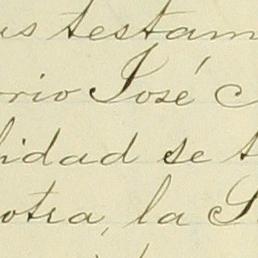 us testam
rio José
lidad se t
otra, la S